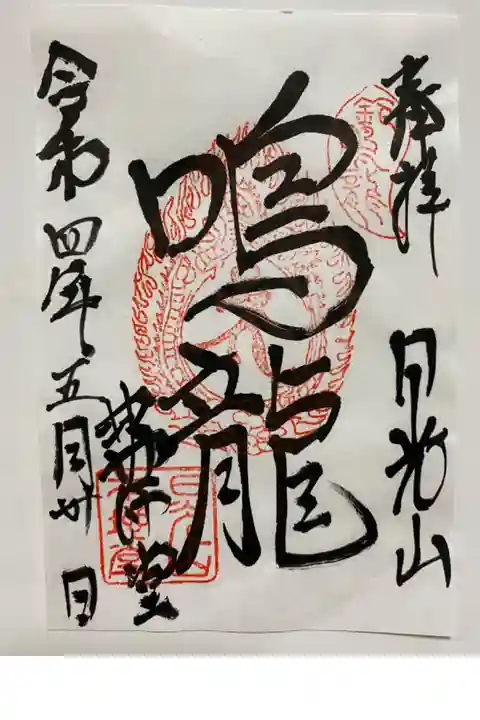 奉拝
日光山
鳴龍
薬師堂
令和四年五月廿日